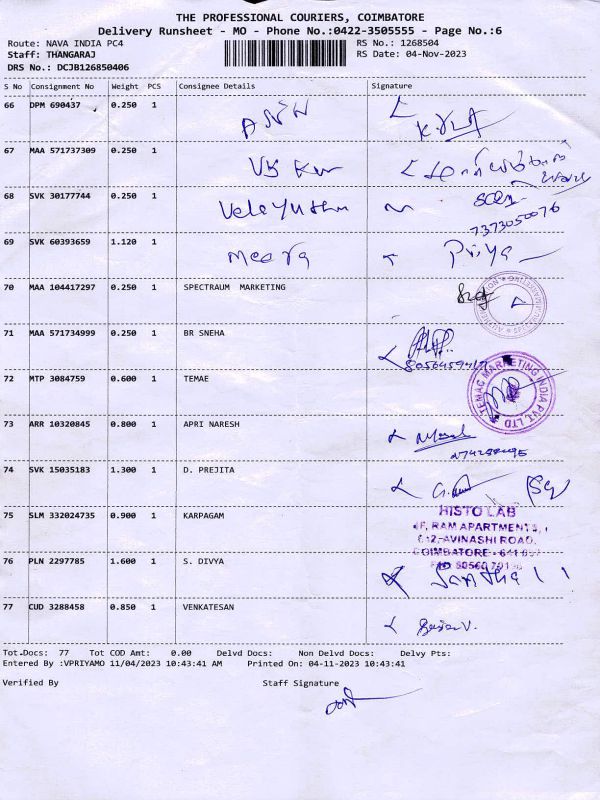 THE PROFESSIONAL COURIERS, COIMBATORE
Delivery Runsheet - MO - Phone No.:0422-3505555 - Page No.:6
Route: NAVA INDIA PC4 RS No.: 1268504
Staff: THANGARAJ RS Date: 04-Nov-2023
DRS No.: DCJB126850406
S No Consignment No Weight PCS Consignee Details Signature
66 DPM 690437 0.250 1
67 MAA 571737309 0.250 1
68 SVK 30177744 0.250 1 Velayutham
7373050076
69 SVK 60393659 1.120 1 Meera Priya
70 MAA 104417297 0.250 1 SPECTRAUM MARKETING
71 MAA 571734999 0.250 1 BR SNEHA
72 MTP 3084759 0.600 1 TEMAE
TEMAC MARKETING INDIA PVT. LTD
73 ARR 10320845 0.800 1 APRI NARESH
74 SVK 15035183 1.300 1 D. PREJITA
75 SLM 332024735 0.900 1 KARPAGAM
HISTO LAB
RAM APARTMENTS,
AVINASHI ROAD,
COIMBATORE
76 PLN 2297785 1.600 1 S. DIVYA
77 CUD 3288458 0.850 1 VENKATESAN
Tot.Docs: 77 Tot COD Amt: 0.00 Delvd Docs: Non Delvd Docs: Delvy Pts:
Entered By :VPRIYAMO 11/04/2023 10:43:41 AM Printed On: 04-11-2023 10:43:41
Verified By Staff Signature